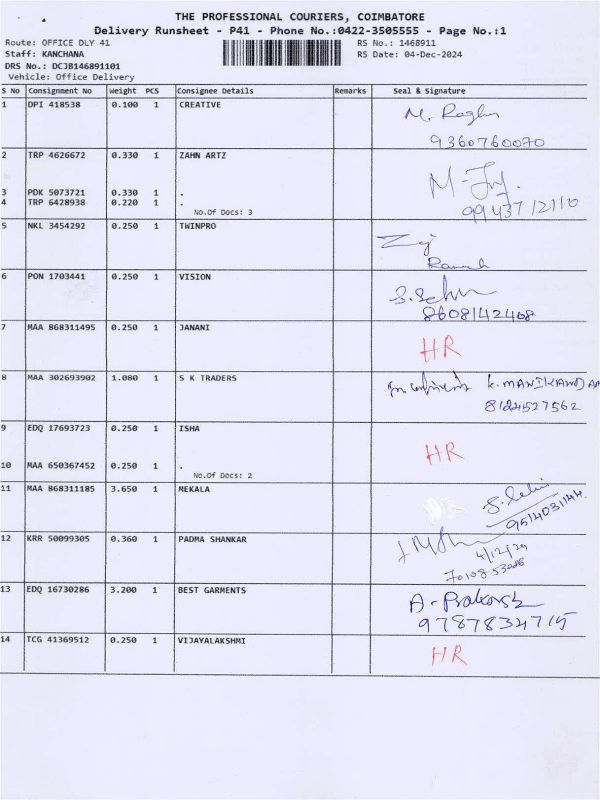 THE PROFESSIONAL COURIERS, COIMBATORE
Delivery Runsheet - P41 - Phone No.:0422-3505555 - Page No.:1
Route: OFFICE DLY 41 RS No.: 1468911
Staff: KANCHANA RS Date: 04-Dec-2024
DRS No.: DCJB146891101
Vehicle: Office Delivery
S No Consignment No Weight PCS Consignee Details Remarks Seal & Signature
1 DPI 418538 0.100 1 CREATIVE M. Raghu
9360760070
2 TRP 4626672 0.330 1 ZAHN ARTZ
3 PDK 5073721 0.330 1 .
4 TRP 6428938 0.220 1 .
No.Of Docs: 3
5 NKL 3454292 0.250 1 TWINPRO
Ramesh
6 PON 1703441 0.250 1 VISION
8608142408
7 MAA 868311495 0.250 1 JANANI HR
8 MAA 302693902 1.080 1 S K TRADERS K. MANIKANDAN
8124527562
9 EDQ 17693723 0.250 1 ISHA HR
10 MAA 650367452 0.250 1 .
No.Of Docs: 2
11 MAA 868311185 3.650 1 MEKALA
9514031144
12 KRR 50099305 0.360 1 PADMA SHANKAR
4/12/24
13 EDQ 16730286 3.200 1 BEST GARMENTS A. Prakash
9787834715
14 TCG 41369512 0.250 1 VIJAYALAKSHMI HR